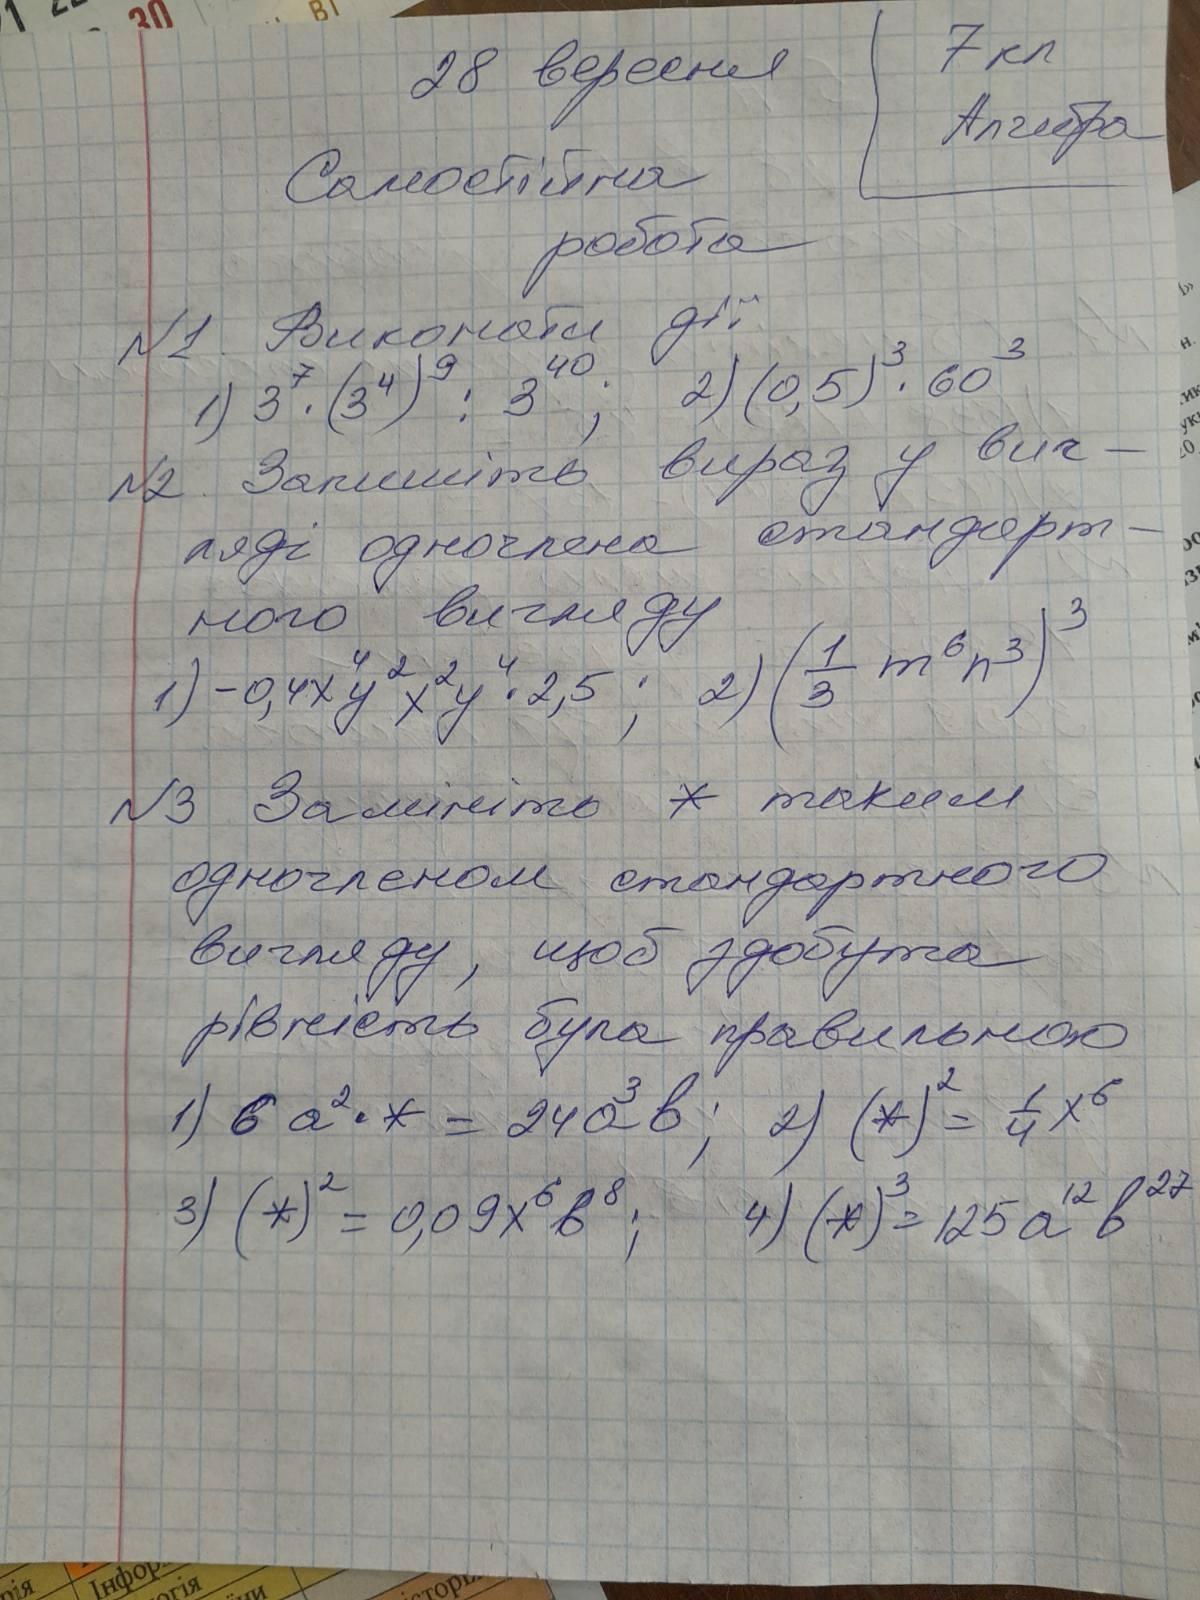 30
ВТ
28 вересня
7 кл
Алгебра
Самостійна
робота
№1. Виконати дії
1) 3⁷·(3⁴)⁹ : 3⁴⁰; 2) (0,5)³·60³
№2. Запишіть вираз у виг-
ляді одночлена стандарт-
ного вигляду
1) -0,4x⁴y²x²y⁴·2,5; 2) (1/3 m⁶n³)³
№3 Замініть * таким
одночленом стандартного
вигляду, щоб здобута
рівність була правильною
1) 6a²·* = 24a³b; 2) (*)² = 1/4 x⁶
3) (*)² = 0,09x⁶b⁸; 4) (*)³ = 125a¹²b²⁷
Інфор